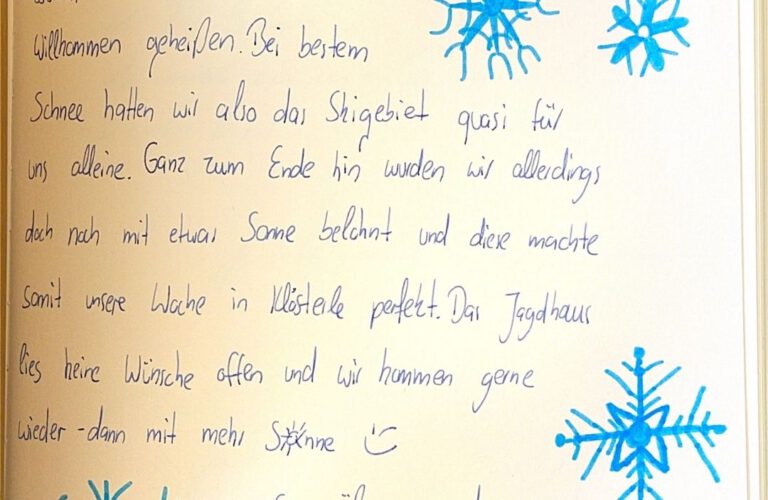 willkommen geheißen. Bei bestem
Schnee hatten wir also das Skigebiet quasi für
uns alleine. Ganz zum Ende hin wurden wir allerdings
doch noch mit etwas Sonne belohnt und diese machte
somit unsere Woche in Klösterle perfekt. Das Jagdhaus
lies keine Wünsche offen und wir kommen gerne
wieder - dann mit mehr Sonne